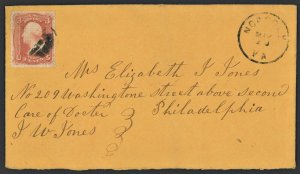 NORFOLK
VA
3 3
Mrs Elizabeth J Jones
No 209 Washingtone street above second
Care of Docter Philadelphia
J W Jones